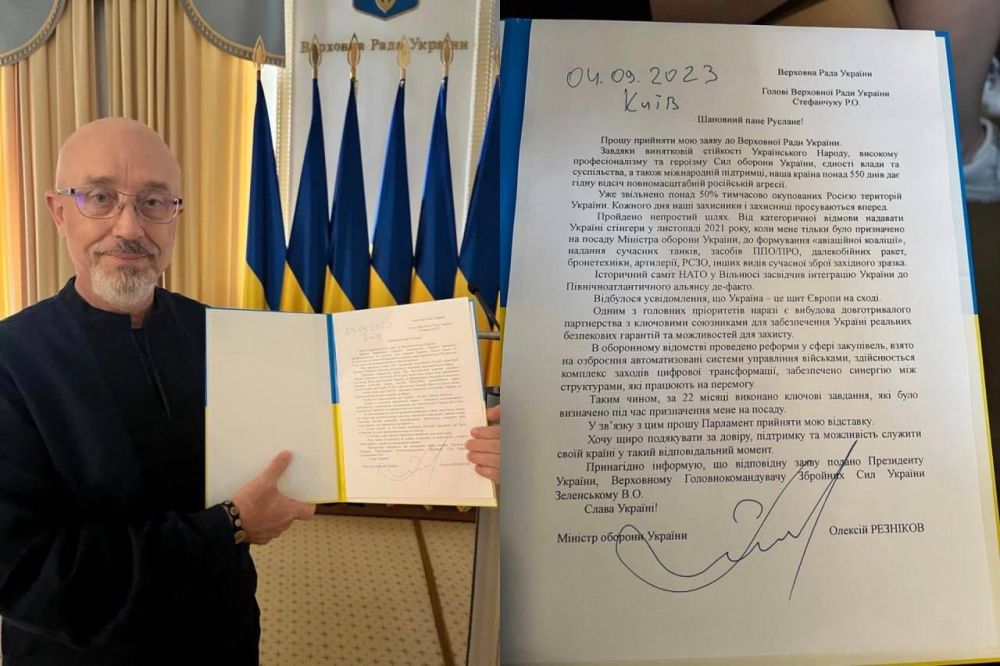 Верховна Рада України
04.09.2023
Київ
Верховна Рада України
Голові Верховної Ради України
Стефанчуку Р.О.
Шановний пане Руслане!
Прошу прийняти мою заяву до Верховної Ради України.
Завдяки винятковій стійкості Українського Народу, високому
професіоналізму та героїзму Сил оборони України, єдності влади та
суспільства, а також міжнародній підтримці, наша країна понад 550 днів дає
гідну відсіч повномасштабній російській агресії.
Уже звільнено понад 50% тимчасово окупованих Росією територій
України. Кожного дня наші захисники і захисниці просуваються вперед.
Пройдено непростий шлях. Від категоричної відмови надавати
Україні стінгери у листопаді 2021 року, коли мене тільки було призначено
на посаду Міністра оборони України, до формування «авіаційної коаліції»,
надання сучасних танків, засобів ППО/ПРО, далекобійних ракет,
бронетехніки, артилерії, РСЗО, інших видів сучасної зброї західного зразка.
Історичний саміт НАТО у Вільнюсі засвідчив інтеграцію України до
Північноатлантичного альянсу де-факто.
Відбулося усвідомлення, що Україна – це щит Європи на сході.
Одним з головних пріоритетів наразі є вибудова довготривалого
партнерства з ключовими союзниками для забезпечення Україні реальних
безпекових гарантій та можливостей для захисту.
В оборонному відомстві проведено реформи у сфері закупівель, взято
на озброєння автоматизовані системи управління військами, здійснюється
комплекс заходів цифрової трансформації, забезпечено синергію між
структурами, які працюють на перемогу.
Таким чином, за 22 місяці виконано ключові завдання, які було
визначено під час призначення мене на посаду.
У зв'язку з цим прошу Парламент прийняти мою відставку.
Хочу щиро подякувати за довіру, підтримку та можливість служити
своїй країні у такий відповідальний момент.
Принагідно інформую, що відповідну заяву подано Президенту
України, Верховному Головнокомандувачу Збройних Сил України
Зеленському В.О.
Слава Україні!
Міністр оборони України
Олексій РЕЗНІКОВ